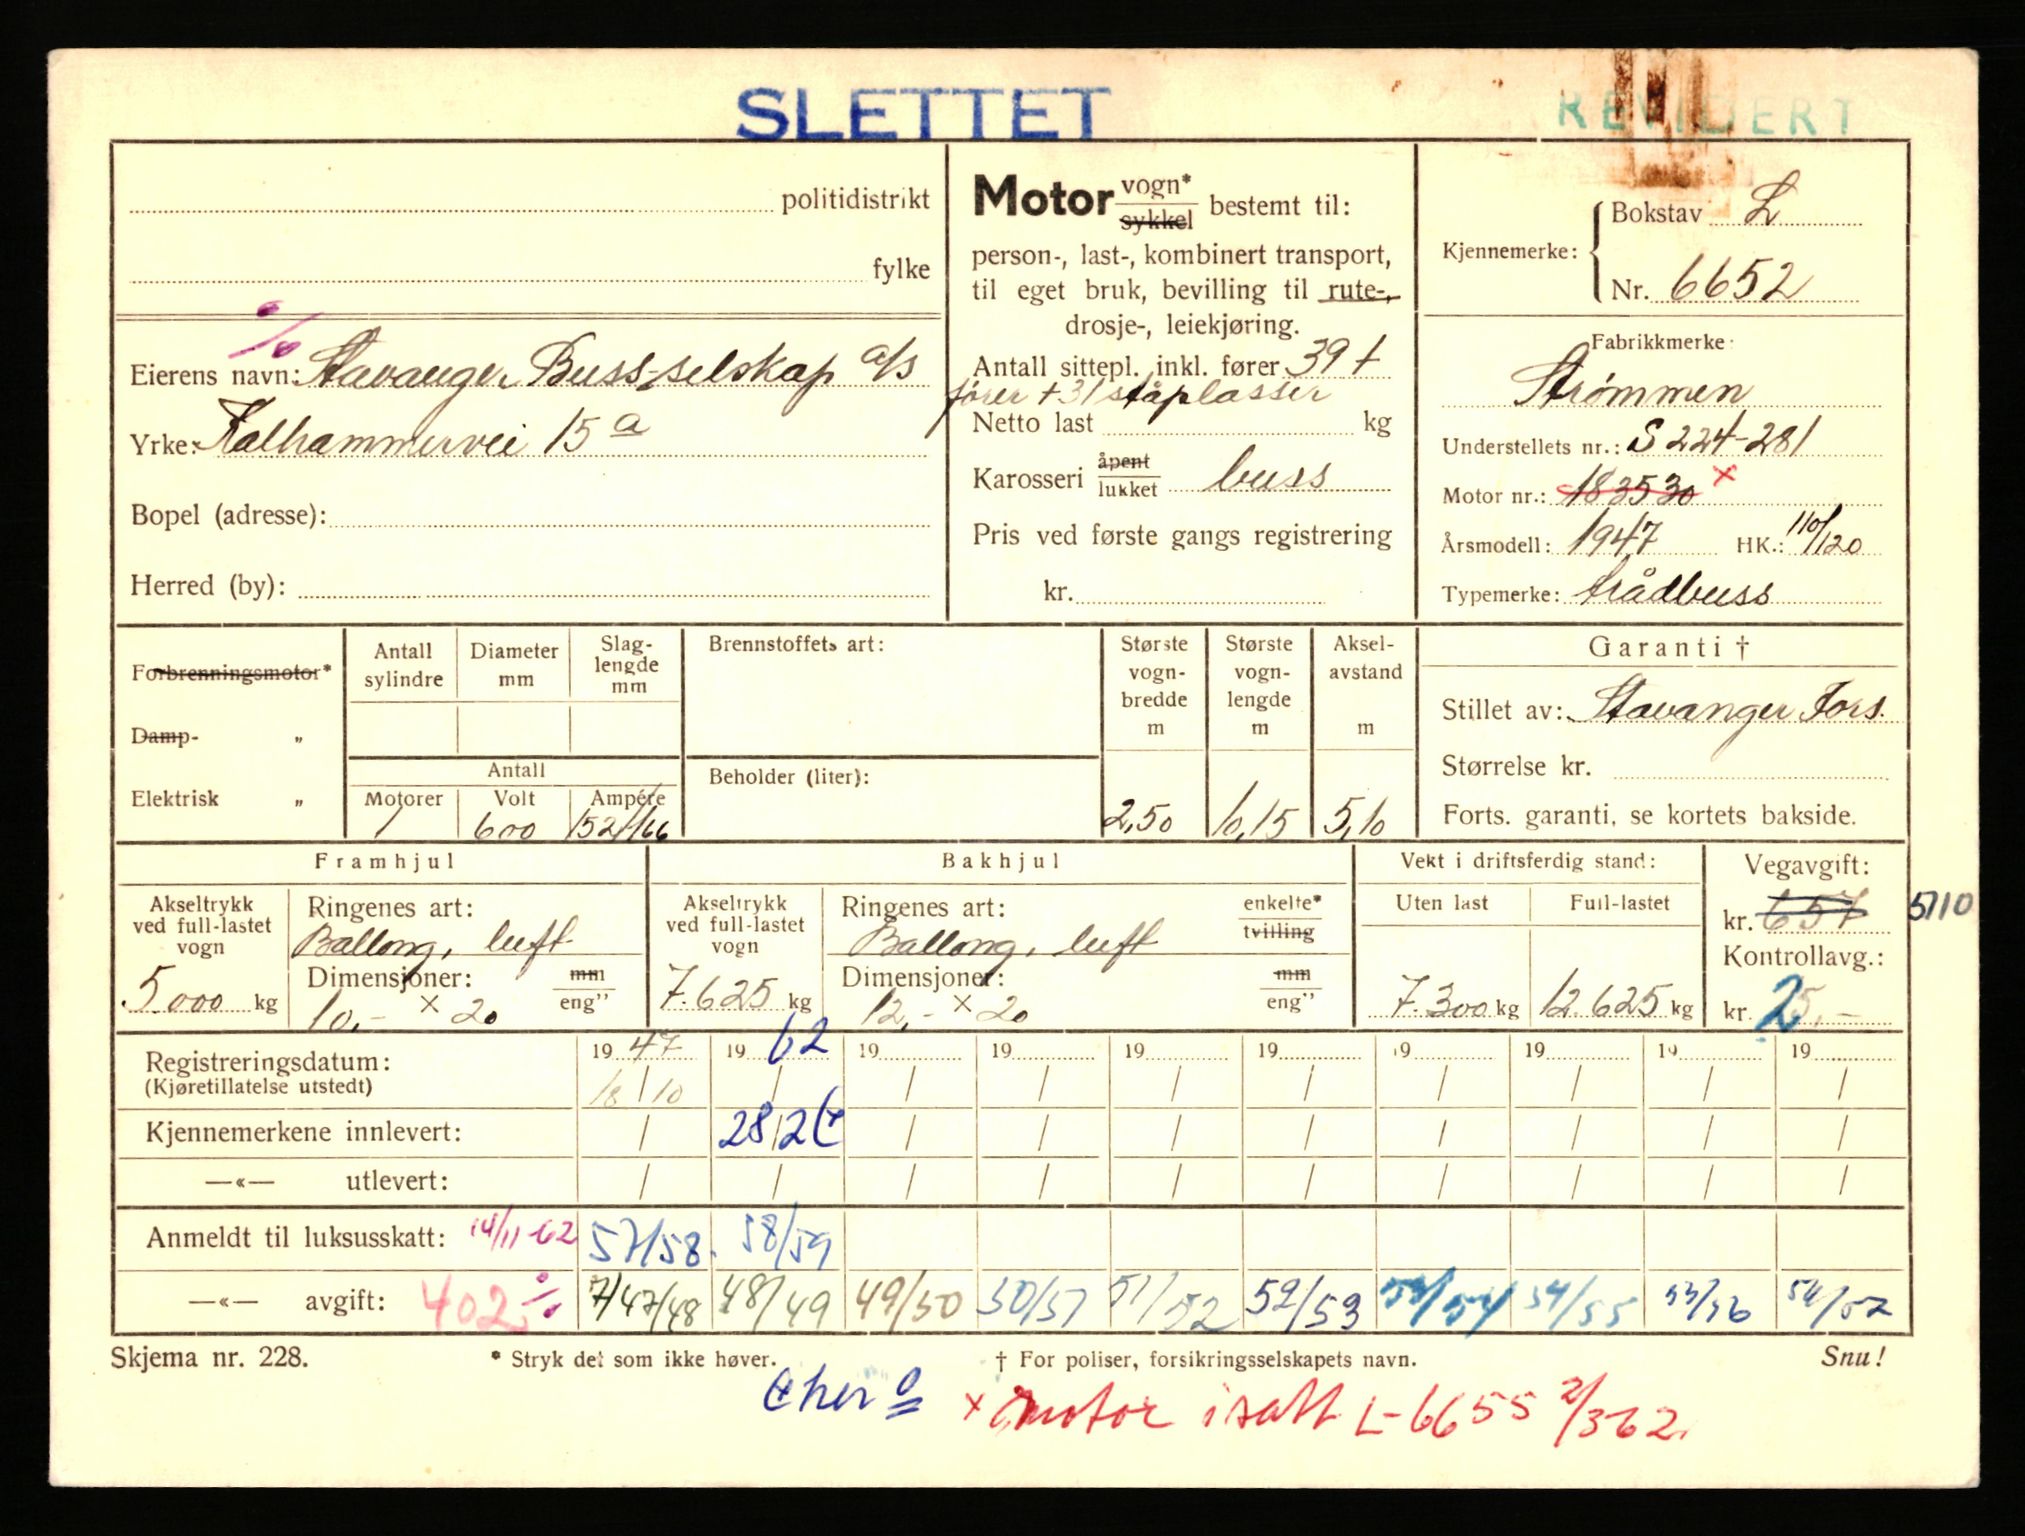 SLETTET
REVIDERT
politidistrikt
fylke
Eierens navn: Stavanger Buss-selskap a/s
Yrke: Kalhammervei 15 a
Bopel (adresse):
Herred (by):
Motor vogn* sykkel bestemt til:
person-, last-, kombinert transport,
til eget bruk, bevilling til rute-,
drosje-, leiekjøring.
Antall sittepl. inkl. fører 39 +
fører + 31 ståplasser
Netto last kg
Karosseri åpent lukket buss
Pris ved første gangs registrering
kr.
Kjennemerke: Bokstav L
Nr. 6652
Fabrikkmerke:
Strømmen
Understellets nr.: S 224-281
Motor nr.: 183530 x
Årsmodell: 1947 HK.: 110/120
Typemerke: trådbuss
Forbrenningsmotor*
Damp- „
Elektrisk „
Antall sylindre
Diameter mm
Slag-lengde mm
Antall
Motorer Volt Ampére
1 600 152/166
Brennstoffets art:
Beholder (liter):
Største vogn-bredde m
2,50
Største vogn-lengde m
10,15
Aksel-avstand m
5,10
Garanti †
Stillet av: Stavanger Fors.
Størrelse kr.
Forts. garanti, se kortets bakside.
Framhjul
Akseltrykk ved full-lastet vogn
5000 kg
Ringenes art:
Ballong, luft
Dimensjoner: mm eng”
10,- x 20
Bakhjul
Akseltrykk ved full-lastet vogn
7.625 kg
Ringenes art: enkelte* tvilling
Ballong, luft
Dimensjoner: mm eng”
12,- x 20
Vekt i driftsferdig stand:
Uten last Full-lastet
7.300 kg 12.625 kg
Vegavgift:
kr. 657 5110
Kontrollavg.:
kr. 25,-
Registreringsdatum: 19 47 19 62 19 19 19 19 19 19 19 19
(Kjøretillatelse utstedt) 18/10 / / / / / / / / /
Kjennemerkene innlevert: / 28/2 / / / / / / / /
—«— utlevert: / / / / / / / / / /
Anmeldt til luksusskatt: 14/11-62 57/58. 58/59
—«— avgift: 402 7/47/48 48/49 49/50 50/51 51/52 52/53 53/54 54/55
Skjema nr. 228.
* Stryk det som ikke høver.
† For poliser, forsikringsselskapets navn.
Snu!
x motor isatt L-6655 2/3 62.